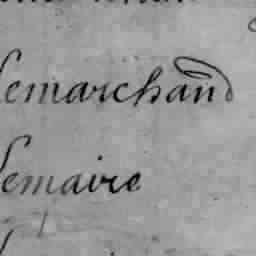 Lemarchand
Lemaire